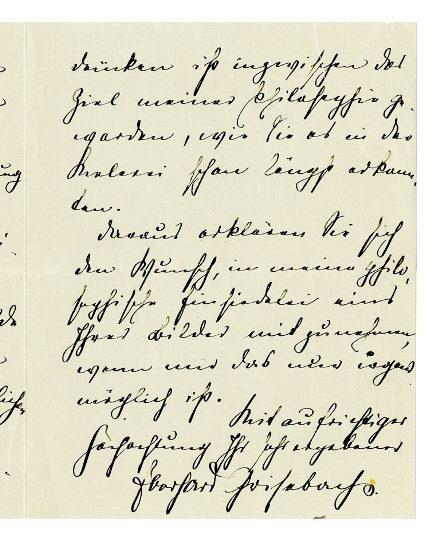 drücken ist inzwischen das
Ziel meiner Philosophie ge-
worden, wie Sie es in der
Malerei schon längst erkann-
ten.
Daraus erklären Sie sich
den Wunsch, in meine philo-
sophische Einsiedelei eins
Ihrer Bilder mitzunehmen,
wenn mir das nur irgend
möglich ist.
Mit aufrichtiger
Hochachtung Ihr sehr ergebener
Eberhard Grisebach